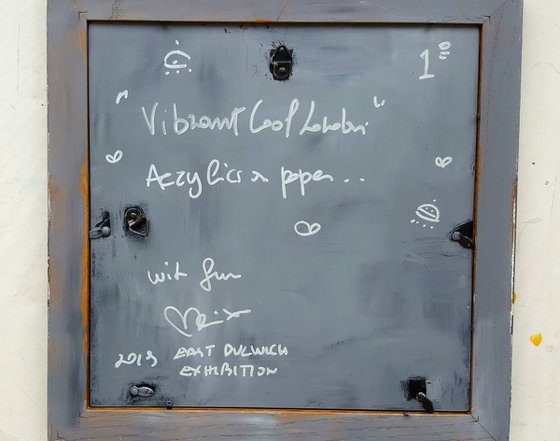 1"'
"Vibrant Cool London"
Acrylics on paper..
with fun
2013 EAST DULWICH
EXHIBITION